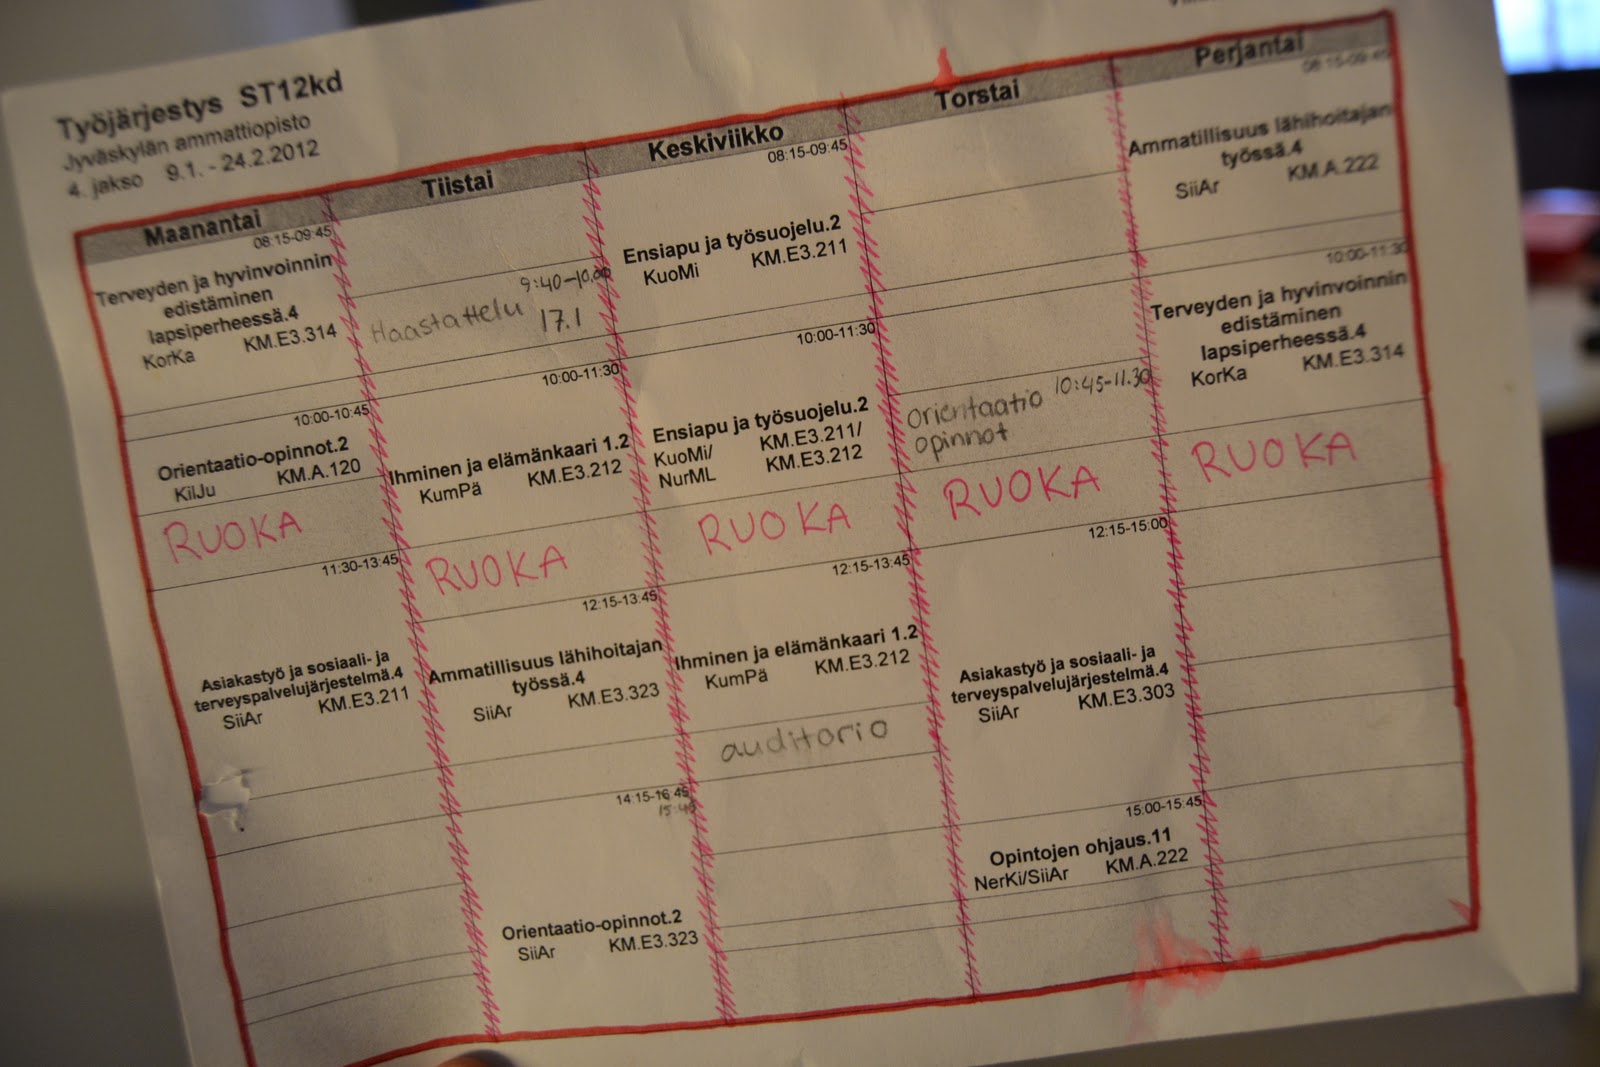 Työjärjestys ST12kd
Jyväskylän ammattiopisto
4. jakso 9.1. - 24.2.2012
Maanantai
08:15-09:45
Terveyden ja hyvinvoinnin
edistäminen
lapsiperheessä.4
KorKa KM.E3.314
10:00-10:45
Orientaatio-opinnot.2
KilJu KM.A.120
RUOKA
11:30-13:45
Asiakastyö ja sosiaali- ja
terveyspalvelujärjestelmä.4
SiiAr KM.E3.211
Tiistai
9:40-10.00
Haastattelu 17.1
10:00-11:30
Ihminen ja elämänkaari 1.2
KumPä KM.E3.212
RUOKA
12:15-13:45
Ammatillisuus lähihoitajan
työssä.4
SiiAr KM.E3.323
14:15-16:45
Orientaatio-opinnot.2
SiiAr KM.E3.323
Keskiviikko
08:15-09:45
Ensiapu ja työsuojelu.2
KuoMi KM.E3.211
10:00-11:30
Ensiapu ja työsuojelu.2
KuoMi/ KM.E3.211/
NurML KM.E3.212
RUOKA
12:15-13:45
Ihminen ja elämänkaari 1.2
KumPä KM.E3.212
auditorio
Torstai
orientaatio 10:45-11.30
opinnot
RUOKA
12:15-15:00
Asiakastyö ja sosiaali- ja
terveyspalvelujärjestelmä.4
SiiAr KM.E3.303
15:00-15:45
Opintojen ohjaus.11
NerKi/SiiAr KM.A.222
Perjantai
08:15-09:45
Ammatillisuus lähihoitajan
työssä.4
SiiAr KM.A.222
10:00-11:30
Terveyden ja hyvinvoinnin
edistäminen
lapsiperheessä.4
KorKa KM.E3.314
RUOKA